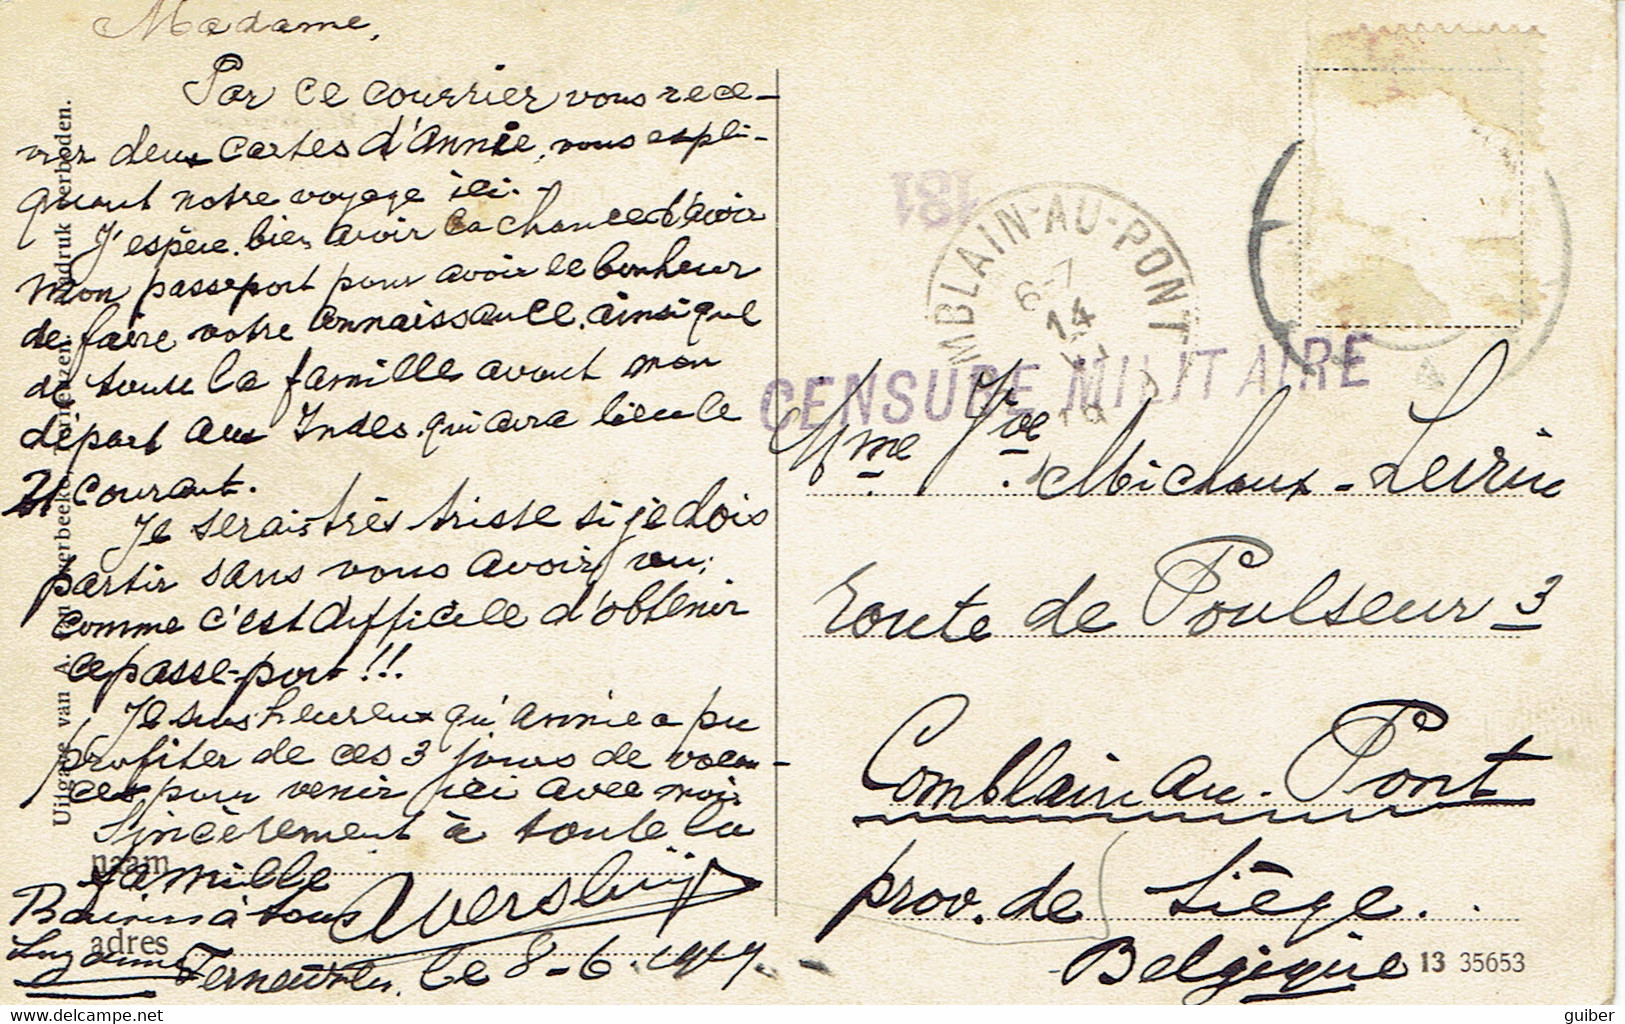 Madame,
Par ce courrier vous rece-
vrez deux cartes d'Annie, vous expli-
quant notre voyage ici.-
J'espère bien avoir la chance d'avoir
mon passeport pour avoir le bonheur
de faire votre connaissance, ainsi que
de toute la famille avant mon
départ aux Indes, qui aura lieu le
21 courant.
Je serais très triste si je dois
partir sans vous avoir vu;
comme c'est difficile d'obtenir
ce passe-port!!!
Je suis heureux qu'Annie a pu
profiter de ces 3 jours de vacan-
ces pour venir ici avec moi,
Sincèrement à toute la
famille
Baisers à tous
Terneuzen, le 8-6-1919.
naam
adres
Uitgave van A. van Overbeeke, Terneuzen. Nadruk verboden.
181
MBLAIN-AU-PONT
6-7
14
19
CENSURE MILITAIRE
A
Mme Vve Michaux-
Route de Poulseur 3
Comblain au-Pont
prov. de Liége..
Belgique
13 35653
guiber